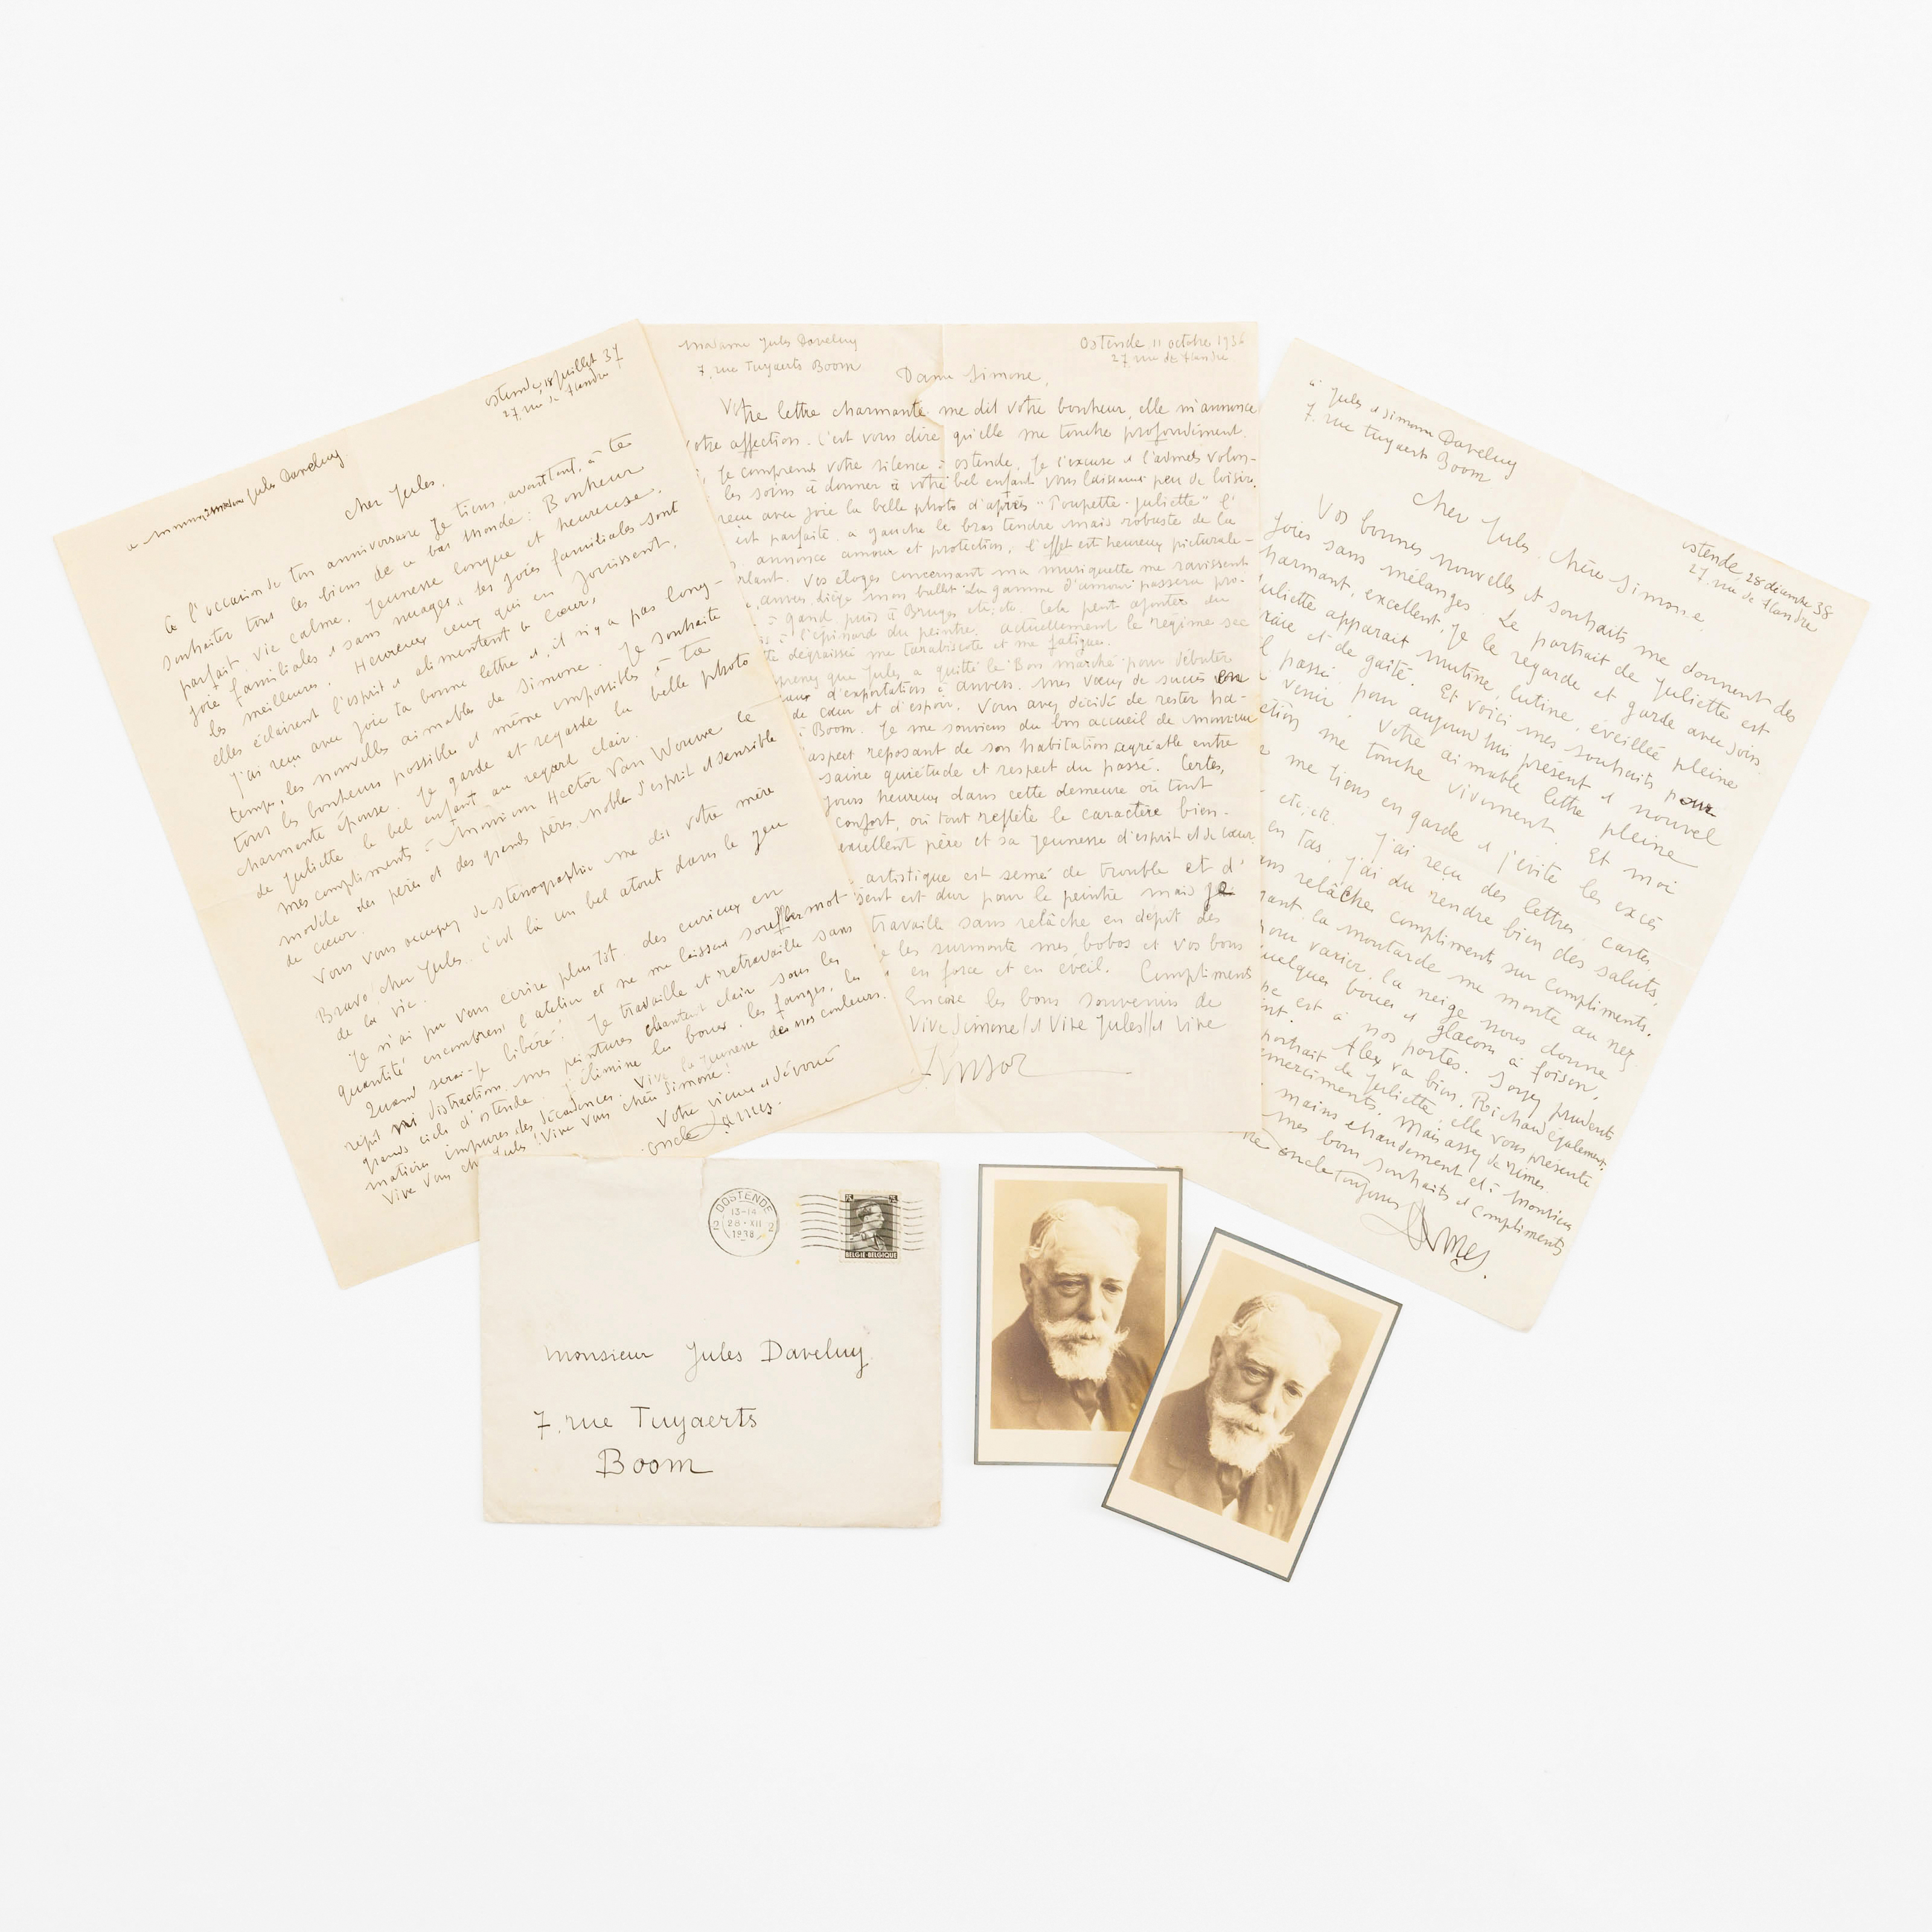 Ostende 18 juillet 37
27, rue de Flandre
a monsieur Jules Daveluy
Cher Jules,
à l'occasion de ton anniversaire je tiens, avant tout, à te
souhaiter tous les biens de ce bas monde : Bonheur
parfait, vie calme, jeunesse longue et heureuse,
joie familiales et sans nuages, les joies familiales sont
les meilleures. Heureux ceux qui en jouissent.
elles éclairent l'esprit et alimentent le cœur,
J'ai reçu avec joie ta bonne lettre et, il n'y a pas long-
temps, les nouvelles aimables de Simone. Je souhaite
tous les bonheurs possibles et même impossibles à ta
charmante épouse. Je garde et regarde la belle photo
de Juliette le bel enfant au regard clair.
mes compliments à Monsieur Hector Van Wouwe le
modèle des pères et des grands pères, noble d'esprit et sensible
de cœur.
Vous vous occupez de sténographie me dit votre mère
Bravo, cher Jules. c'est là un bel atout dans le jeu
de la vie.
Je n'ai pu vous écrire plus tôt. des curieux en
quantité encombrent l'atelier et ne me laissent souffler mot
Quand serai-je libéré? Je travaille et retravaille sans
répit ni distraction. mes peintures chantent clair sous les
grands ciels d'ostende. j'élimine les boues, les fanges, les
matières impures des décadences. Vive la jeunesse de nos couleurs.
Vive vous cher Jules! Vive vous chère Simone!
Votre vieux et dévoué
oncle James.
Madame Jules Daveluy
7, rue Tuyaerts Boom
Ostende, 11 octobre 1936
27, rue de Flandre
Dame Simone,
Votre lettre charmante me dit votre bonheur, elle m'annonce
otre affection. C'est vous dire qu'elle me touche profondément.
Je comprends votre silence à ostende, Je l'excuse et l'admets volon-
les soins à donner à votre bel enfant vous laissant peu de loisir.
reçu avec joie la belle photo d'après "Poupette-Juliette" l'
est parfaite, a gauche le bras tendre mais robuste de la
annonce amour et protection, l'effet est heureux picturale-
rlant. Vos éloges concernant ma musiquette me ravissent
anvers, liège mon ballet La gamme d'amour passera pro-
à gand puis à Bruges etc, etc. Cela peut ajouter du
à l'épinard du peintre. actuellement le régime sec
te dégraissé me tarabiscote et me fatigue.
prenez que Jules a quitté le Bon marché pour débuter
eaux d'exportations à anvers. mes vœux de succès en
de cœur et d'espoir. Vous avez décidé de rester ha-
à Boom. Je me souviens du bon accueil de monsieur
aspect reposant de son habitation agréable entre
saine quiétude et respect du passé. Certes,
jours heureux dans cette demeure où tout
confort, où tout reflète le caractère bien-
excellent père et sa jeunesse d'esprit et de cœur.
artistique est semé de trouble et d'
sent est dur pour le peintre mais je
travaille sans relâche en dépit des
e les surmonte mes bobos et vos bons
en force et en éveil. Compliments
Encore les bons souvenirs de
Vive Simone! et Vive Jules!! et Vive
Ensor
à Jules et Simone Daveluy
7. rue Tuyaerts
Boom
Ostende 28 décembre 38
27, rue de Flandre
Cher Jules, Chère Simone.
Vos bonnes nouvelles et souhaits me donnent des
Joies sans mélanges. Le portrait de Juliette est
harmant, excellent, Je le regarde et garde avec soin
uliette apparait mutine, lutine, éveillée pleine
raie et de gaité. Et voici mes souhaits pour
l passé, pour aujourd'hui présent et nouvel
venir. Votre aimable lettre pleine
ction me touche vivement. Et moi
me tiens en garde et j'évite les excés
etc, etc. J'ai reçu des lettres, cartes
en tas, j'ai du rendre bien des saluts,
ans relâche compliments sur compliments.
ant la moutarde me monte au nez
our varier, la neige nous donne
quelques boues et glacons à foison,
pe est à nos portes. Soyez prudents
nt. Alex va bien, Richard également.
portrait de Juliette, elle vous présente
emerciments. Mais assez de rimes.
mains chaudement et à monsieur
mes bons souhaits et compliments
re oncle Toujours
James.
OOSTENDE
2 2
13-14
28·XII
1938
75 75
BELGIE-BELGIQUE
Monsieur Jules Daveluy
7. rue Tuyaerts
Boom